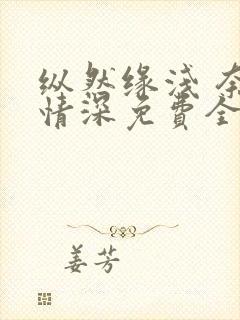 纵然缘浅 奈
情深免費全
姜芳